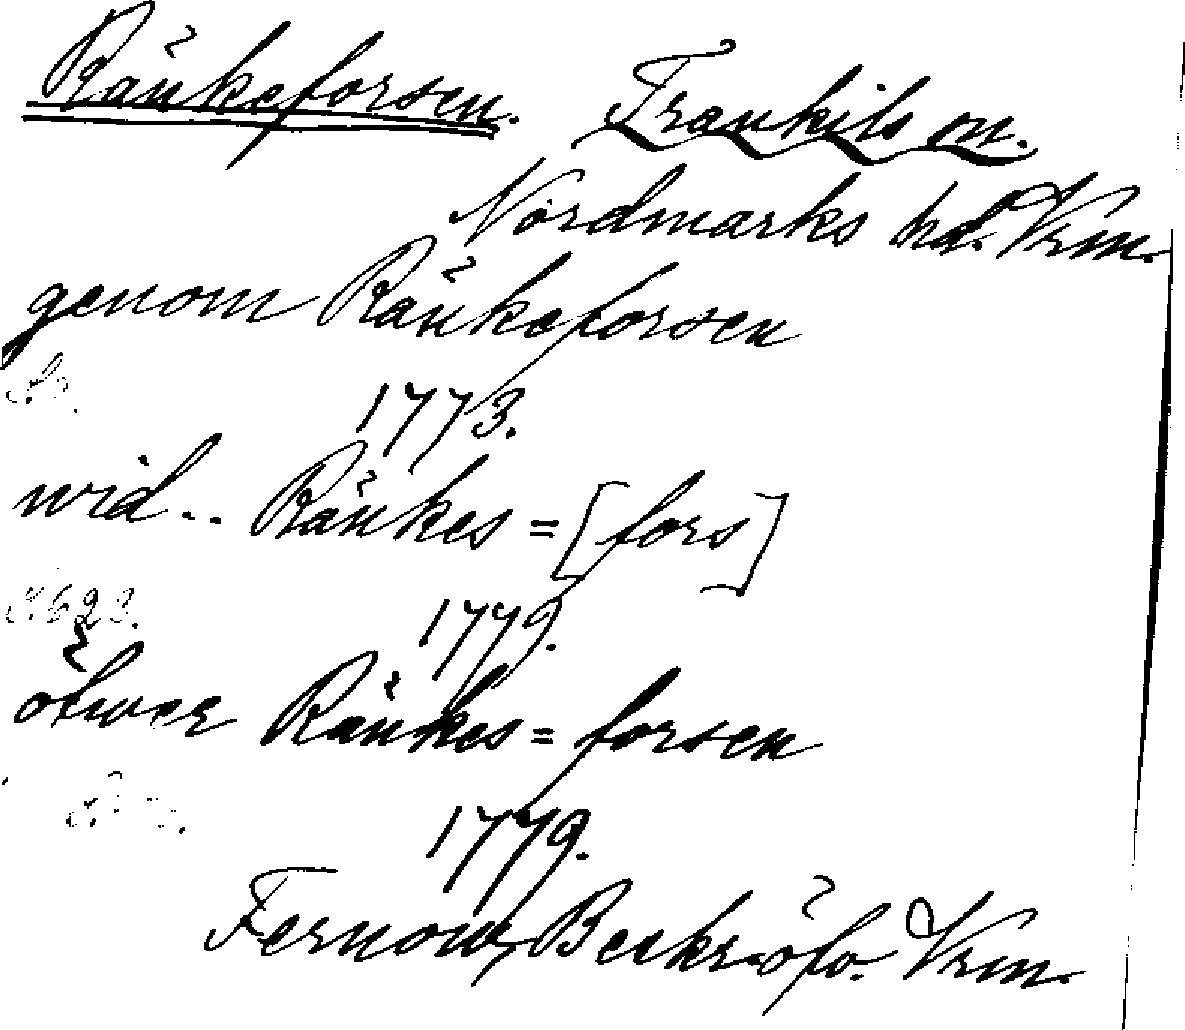 Ränkeforsen. Trankils sn.
Nordmarks hd. Vrm.
genom Ränkeforsen
1773.
wid.. Ränkes=[fors]
S. 623.
1779.
öfwer Ränkes=forsen
1779.
Fernow, Beskr. öfv. Vrm.